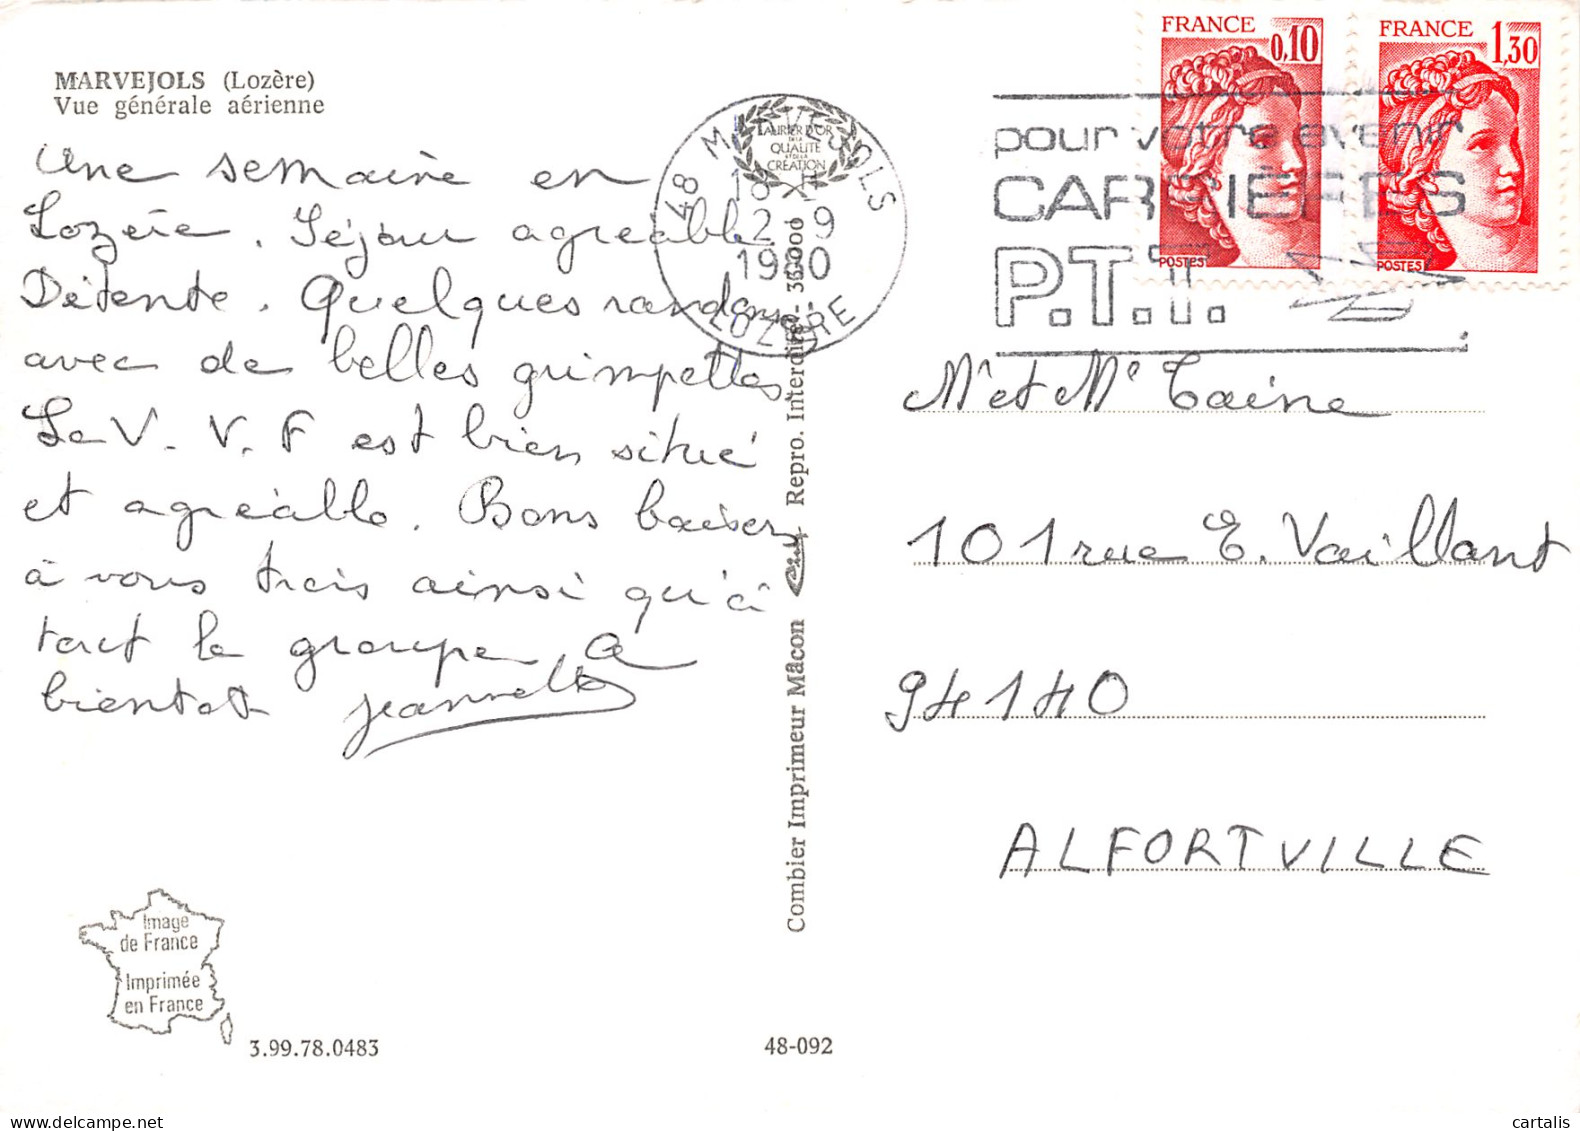 MARVEJOLS (Lozère)
Vue générale aérienne
Une semaine en
Lozère. Séjour agréable
Détente. Quelques randonné
avec de belles grimpettes
Le V.V.F est bien situé
et agréable. Bons baisers
à vous trois ainsi qu'à
tout le groupe. A
bientot Jeannette
Image
de France
Imprimée
en France
3.99.78.0483
48-092
Combier Imprimeur Mâcon
Repro. Interdite
LAURIER D'OR
DE LA
QUALITÉ
ET DE LA
CRÉATION
48 MARVEJOLS
18 H
2 - 9
1980
LOZERE
pour votre avenir
CARRIERES
P.T.T.
FRANCE
0,10
POSTES
FRANCE
1,30
POSTES
Mr et Me Taine
101 rue E. Vaillant
94140
ALFORTVILLE
cartalis